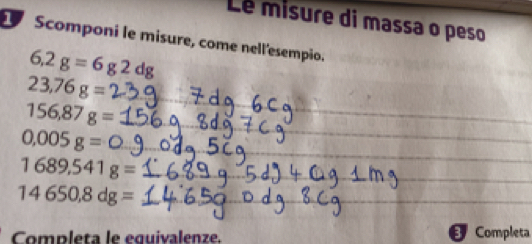 Le misure di massa o peso
1 Scomponi le misure, come nell'esempio.
6,2 g = 6 g 2 dg
23,76 g = 23g 7dg 6cg
156,87 g = 156g 8dg 7cg
0,005 g = 0 g 0dg 5cg
1 689,541 g = 1689 g 5dg 4cg 1mg
14 650,8 dg = 1465g 0 dg 8cg
Completa le equivalenze.
3 Completa